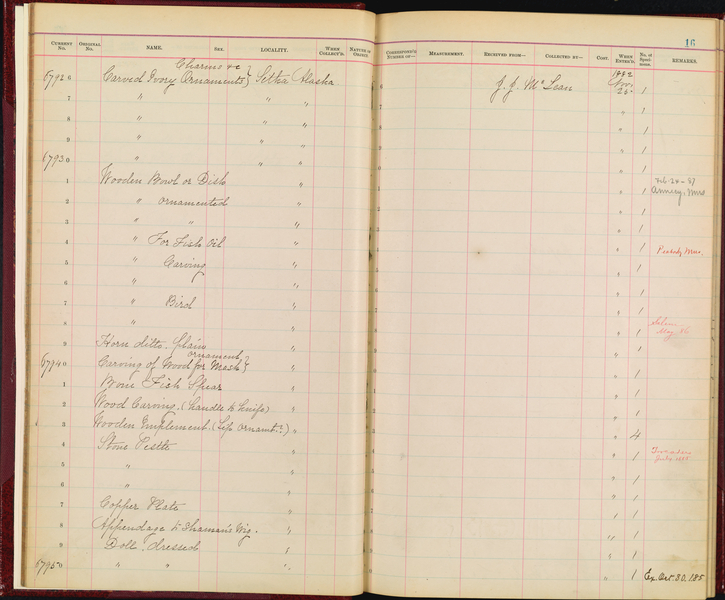 16
CURRENT No. ORIGINAL No. NAME. SEX. LOCALITY. WHEN COLLECT'D. NATURE OF OBJECT. CORRESPOND'G NUMBER OF— MEASUREMENT. RECEIVED FROM— COLLECTED BY— COST. WHEN ENTER'D. No. of Speci-mens. REMARKS.
Charms &c 1882
67926 Carved Ivory Ornaments } Sitka Alaska 6 J. J. McLean Nov. 25 1
7 " " " 7 " 1
8 " " " 8 " 1
9 " " " 9 " 1
67930 " " " 0 " 1
Feb-24-87
1 Wooden Bowl or Dish " 1 " 1
2 " ornamented " 2 " 1
3 " " " 3 " 1
4 " For Fish Oil " 4 " 1 Peabody Mus.
5 " Carving " 5 " 1
6 " " 6 " 1
7 " Bird " 7 " 1
8 " " 8 " 1 Salem May 86
9 Horn ditto. plain " 9 " 1
ornament
67940 Carving of Wood for Mask } " 0 " 1
1 Bone Fish Spear " 1 " 1
2 Wood Carving. (handle to knife) " 2 " 1
3 Wooden Implement. (Lip Ornamt.?) " 3 " 4
4 Stone Pestle " 4 " 1
5 " " 5 " 1
6 " " 6 " 1
7 Copper Plate " 7 " 1
8 Appendage to Shaman's Wig. " 8 " 1
9 Doll, dressed " 9 " 1
67950 " " " 0 " 1 Ex. Oct. 30. 185